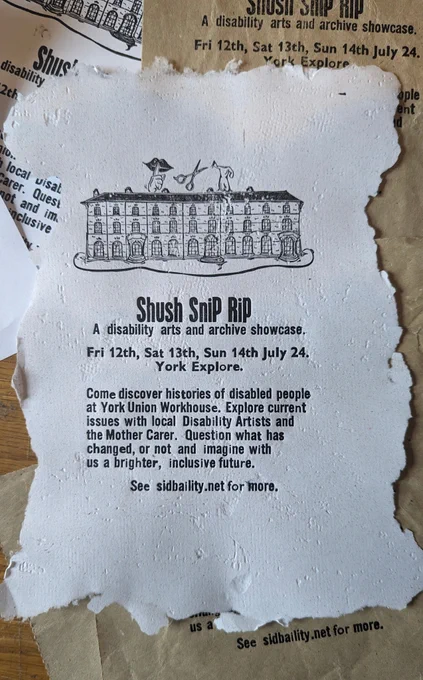 Shush SniP RiP
A disability arts and archive showcase.
Fri 12th, Sat 13th, Sun 14th July 24.
York Explore
Shus
disability
12th
local disab
Carer. Quest
not and im
inclusive
Shush SniP RiP
A disability arts and archive showcase.
Fri 12th, Sat 13th, Sun 14th July 24.
York Explore.
Come discover histories of disabled people
at York Union Workhouse. Explore current
issues with local Disability Artists and
the Mother Carer. Question what has
changed, or not and imagine with
us a brighter, inclusive future.
See sidbaility.net for more.
us a
See sidbaility.net for more.